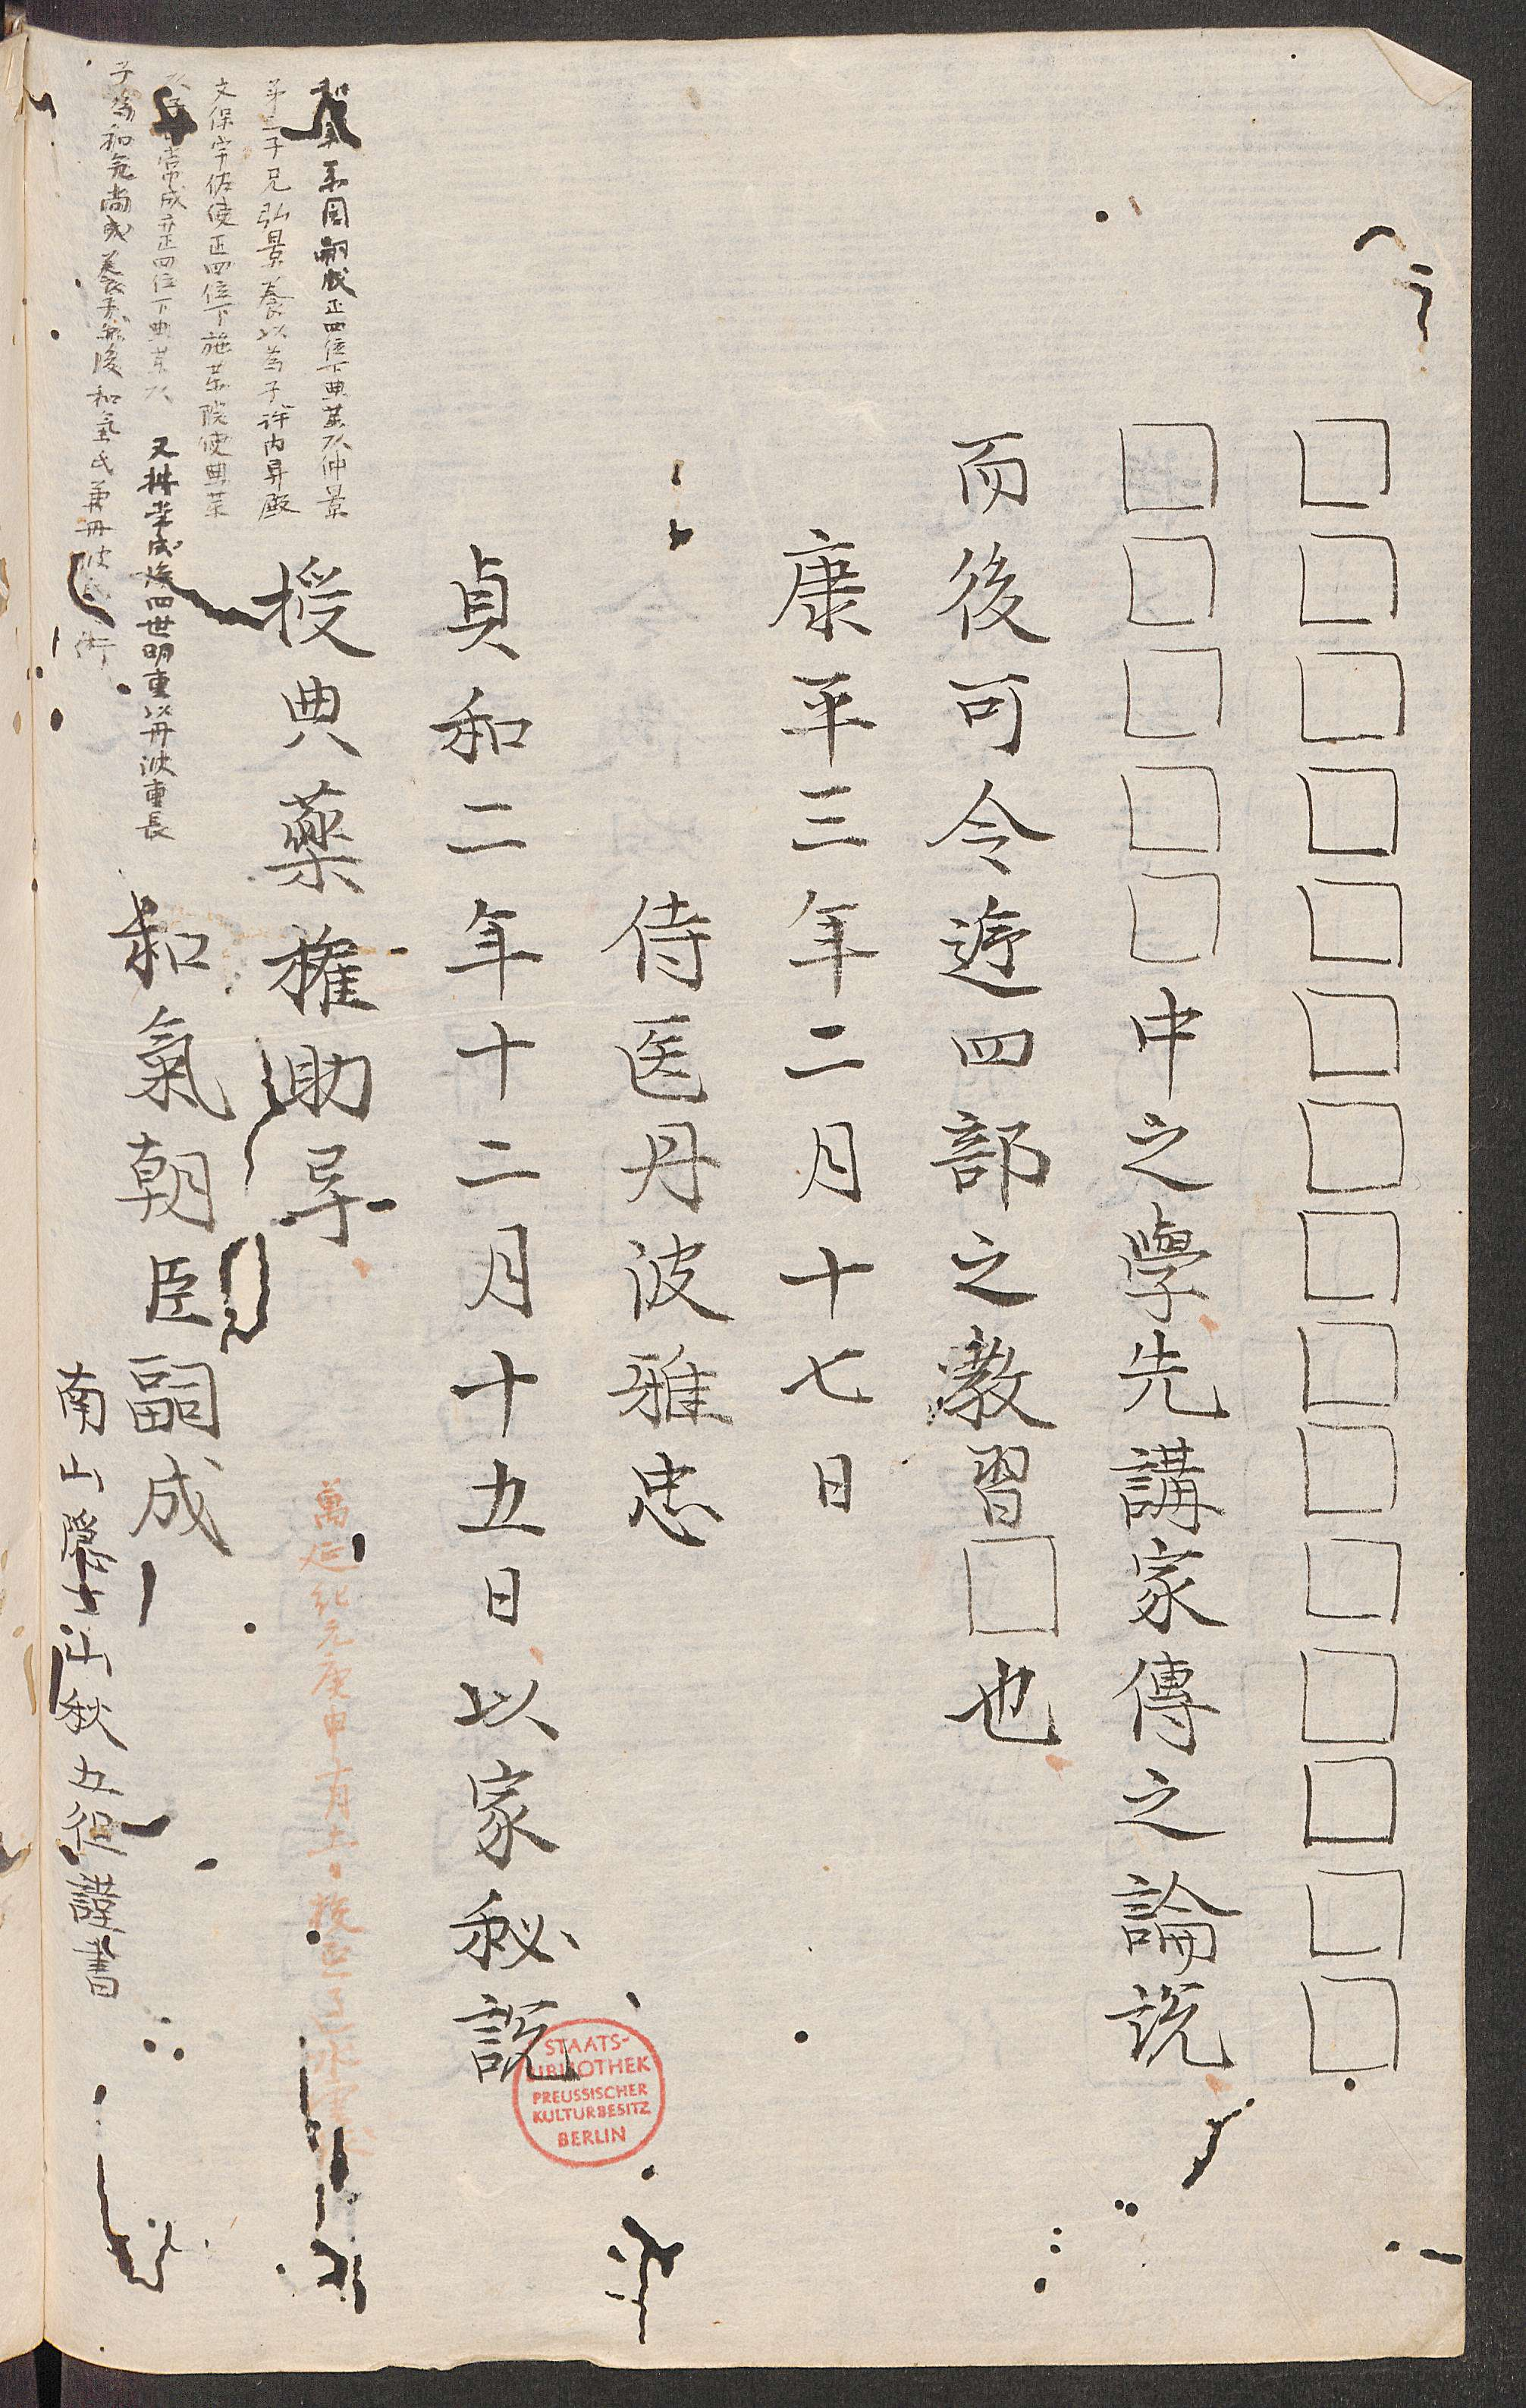 □□□□□□□□□□□□□□□
□□□□□中之學先講家傳之論說
而後可令遊四部之教習□也
康平三年二月十七日
侍医丹波雅忠
貞和二年十二月十五日以家秘說
授典藥權助㝵
和氣朝臣嗣成
南山隱士 秋五 謹書
嗣成正四位下典茱 仲景
子兄弘景養以為子許內昇殿
文保宇佐使正四位下施茱院使典茱
常成 正四位下典茱
又 常成後四世明重以丹波重長
子為和氣尚成養 後和氣氏兼丹波 術
萬延紀元庚申 月
STAATS-
BIBLIOTHEK
PREUSSISCHER
KULTURBESITZ
BERLIN